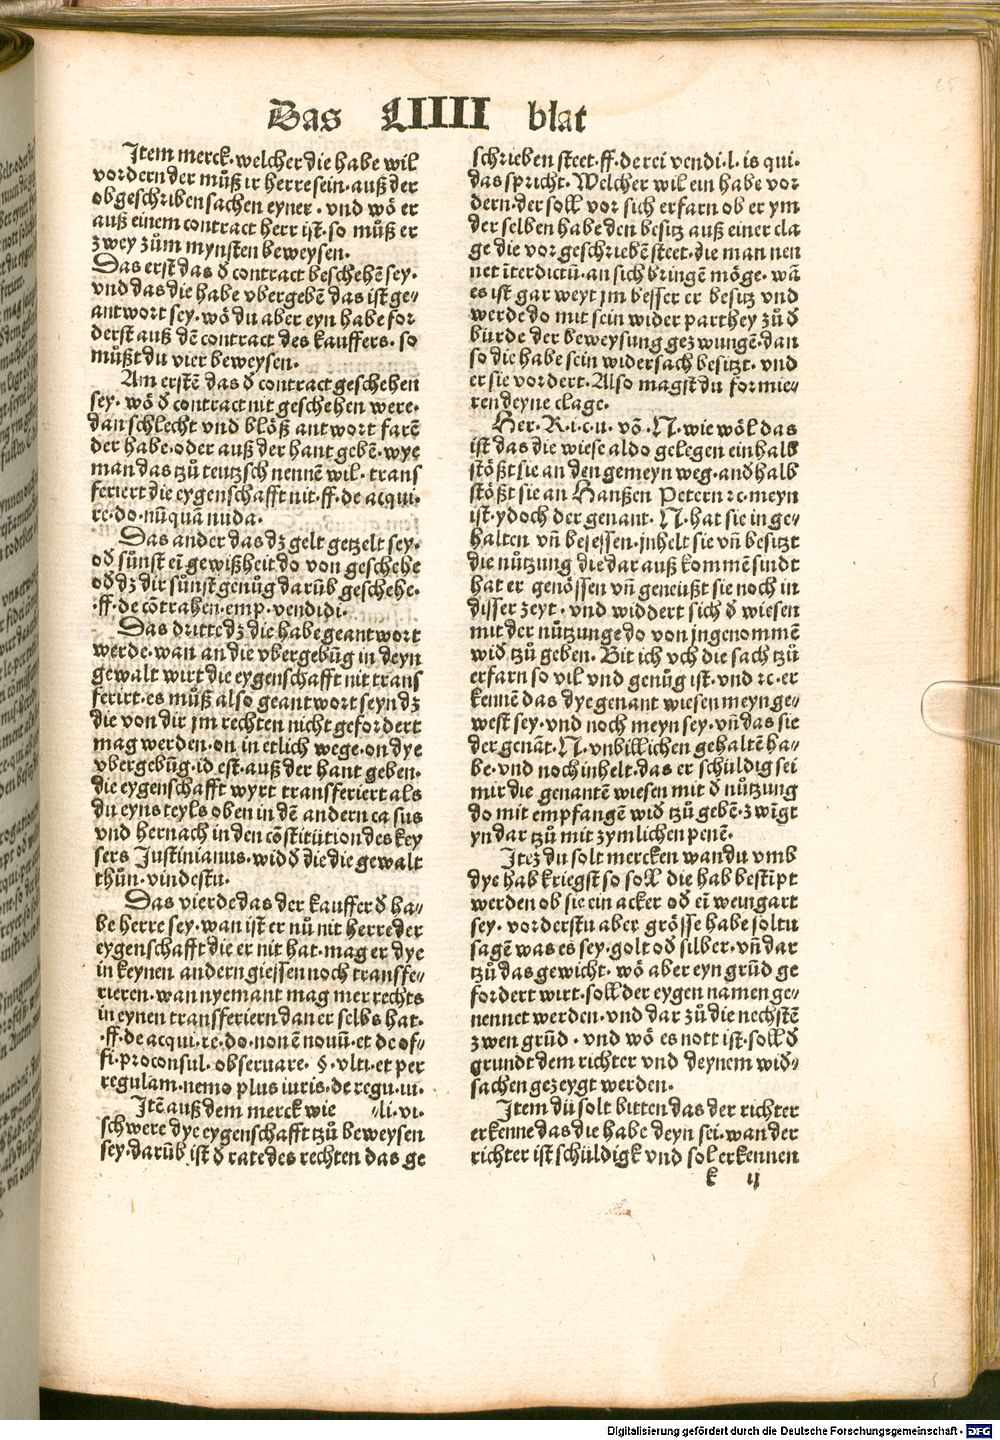 Das LIIII blat
Item merck·welcher die habe wil
vordern der müß ir herre sein·auß der
obgeschriben sachen eyner·vnd wō er
auß einem contract herr ist·so müß er
zwey zům mynsten beweysen.
Das erst das đ contract beschehē sey·
vnd das die habe vbergebē das ist ge⸗
antwort sey·wō du aber eyn habe for
derst auß dē contract des kauffers·so
můßt du vier beweysen.
Am erstē das đ contract geschehen
sey·wō đ contract nit geschehen were·
dan schlecht vnd blöß antwort farē
der habe·oder auß der hant gebē·wye
man das tzů teutzsch nennē wil·trans
feriert die eygenschafft nit·ff·de acqui·
re·do·nūquā nuda·
Das ander das dz gelt getzelt sey·
ođ sůnst eī gewißheit do von geschehe
ođ dz dir sůnst genůg darūb geschehe·
·ff·de cōtrahen·emp·vendidi·
Das dritte dz die habe geantwort
werde·wan an die vbergebūg in deyn
gewalt wirt die eygenschafft nit trans
ferirt·es můß also geantwort seyn dz
die von dir jm rechten nicht gefordert
mag werden·on in etlich wege·on dye
vbergebūg·id est·auß der hant geben·
die eygenschafft wyrt transferiert als
du eyns teyls oben in dē andern casus
vnd hernach in den cōstitūtion des key
sers Justinianus·wid đ die die gewalt
thůn·vindestu·
Das vierde das der kauffer đ ha⸗
be herre sey·wan ist er nů nit herre der
eygenschafft die er nit hat·mag er dye
in keynen andern giessen noch transfe⸗
rieren·wan nyemant mag mer rechts
in eynen transferiern dan er selbs hat·
·ff·de acqui·re·do·nonē nouū·et de of⸗
fi·proconsul·obseruare·§·vlti·et per
regulam·nemo plus iuris·de regu·iu·
Itē auß dem merck wie ⸗li·vi·
schwere dye eygenschafft tzů beweysen
sey·darūb ist đ rate des rechten das ge
schrieben steet·ff·de rei vendi·l·is qui·
das spricht·Welcher wil ein habe vor
dern·der soll vor sich erfarn ob er ym
der selben habe den besitz auß einer cla
ge die vor geschriebē steet·die man nen
net īterdictū·an sich bringē möge·wā
es ist gar weyt jm besser er besitz vnd
werde do mit sein wider parthey zů đ
bürde der beweysung gezwungē·dan
so die habe sein widersach besitzt·vnd
er sie vordert·Also magst du formie⸗
ren deyne clage·
Her·R·i·c·u·vō·N·wie wöl das
ist das die wiese aldo gelegen einhalb
stößt sie an den gemeyn weg·anđhalb
stößt sie an Hanßen Petern ꝛc·meyn
ist·ydoch der genant·N·hat sie in ge⸗
halten vn̄ besessen·inhelt sie vn̄ besitzt
die nůtzung die dar auß kommē sindt
hat er genössen vn̄ geneüßt sie noch in
disser zeyt·vnd widdert sich đ wiesen
mit der nůtzunge do von jngenommē
wiđ tzů geben·Bit ich vch die sach tzů
erfarn so vil vnd genůg ist·vnd ꝛc·er
kennē das dye genant wiesen meyn ge⸗
west sey·vnd noch meyn sey·vn̄ das sie
der genāt·N·vnbillichen gehaltē ha⸗
be·vnd noch inhelt·das er schůldig sei
mir die genantē wiesen mit đ nůtzung
do mit empfangē wiđ tzů gebē·zwīgt
yn dar tzů mit zymlichen penē·
Iteʒ du solt mercken wan du vmb
dye hab kriegst so soll die hab bestīpt
werden ob sie ein acker ođ eī weingart
sey·vorderstu aber grösse habe soltu
sagē was es sey·golt ođ silber·vn̄ dar
tzů das gewicht·wō aber eyn grūd ge
fordert wirt·soll der eygen namen ge⸗
nennet werden·vnd dar zů die nechstē
zwen grūd·vnd wō es nott ist·soll đ
grundt dem richter vnd deynem wiđ⸗
sachen gezeygt werden·
Item dü solt bitten das der richter
erkenne das die habe deyn sei·wan der
richter ist schůldigk vnd sol erkennen
k ij
65
Digitalisierung gefördert durch die Deutsche Forschungsgemeinschaft - DFG